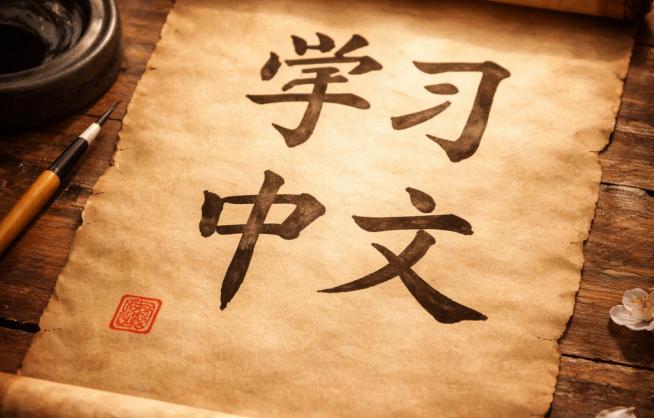 学习
中文